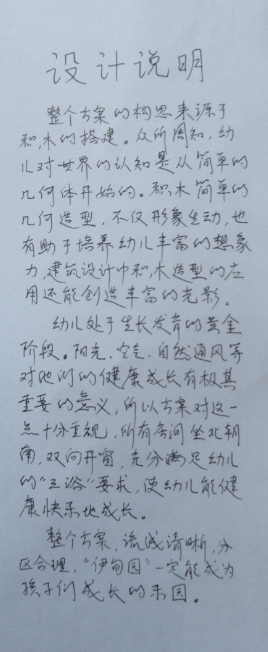 设计说明
整个方案的构思来源于
积木的搭建。众所周知,幼
儿对世界的认知是从简单的
几何体开始的。积木简单的
几何造型,不仅形象生动,也
有助于培养幼儿丰富的想象
力,建筑设计中积木造型的应
用还能创造丰富的光影。
幼儿处于生长发育的黄金
阶段。阳光、空气、自然通风等
对他们的健康成长有极其
重要的意义,所以方案对这一
点十分重视,所有房间坐北朝
南,双向开窗,充分满足幼儿
的"三浴"要求,使幼儿能健
康快乐地成长。
整个方案,流线清晰,分
区合理,"伊甸园"一定能成为
孩子们成长的乐园。